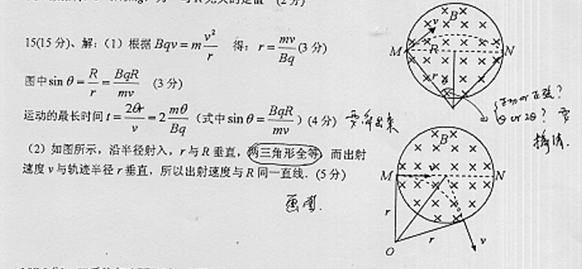 15(15 分)、解：(1) 根据 Bqv = m v²/r 得：r = mv/Bq (3 分)
图中 sin θ = R/r = BqR/mv (3 分)
运动的最长时间 t = 2θr/v = 2 mθ/Bq (式中 sin θ = BqR/mv) (4 分)
(2) 如图所示，沿半径射入，r 与 R 垂直，两三角形全等，而出射
速度 v 与轨迹半径 r 垂直，所以出射速度与 R 同一直线．(5 分)
画图.
B
v
M R N
r
θ
θ or 2θ？
B
M v N
r
O r v